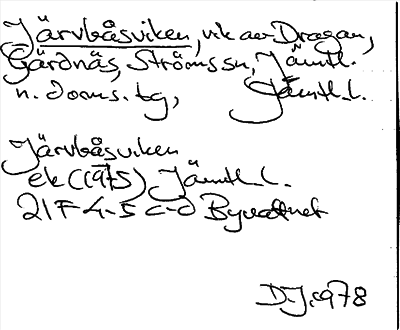 Järvbåsviken, vik av Dragan,
Gärdnäs, Ströms sn, Jämtl.
n. doms. bg, Jämtl. l.
Järvbåsviken
ek (1975) Jämtl. l.
21F 4-5 c-d Byvattnet
D.J. 1978